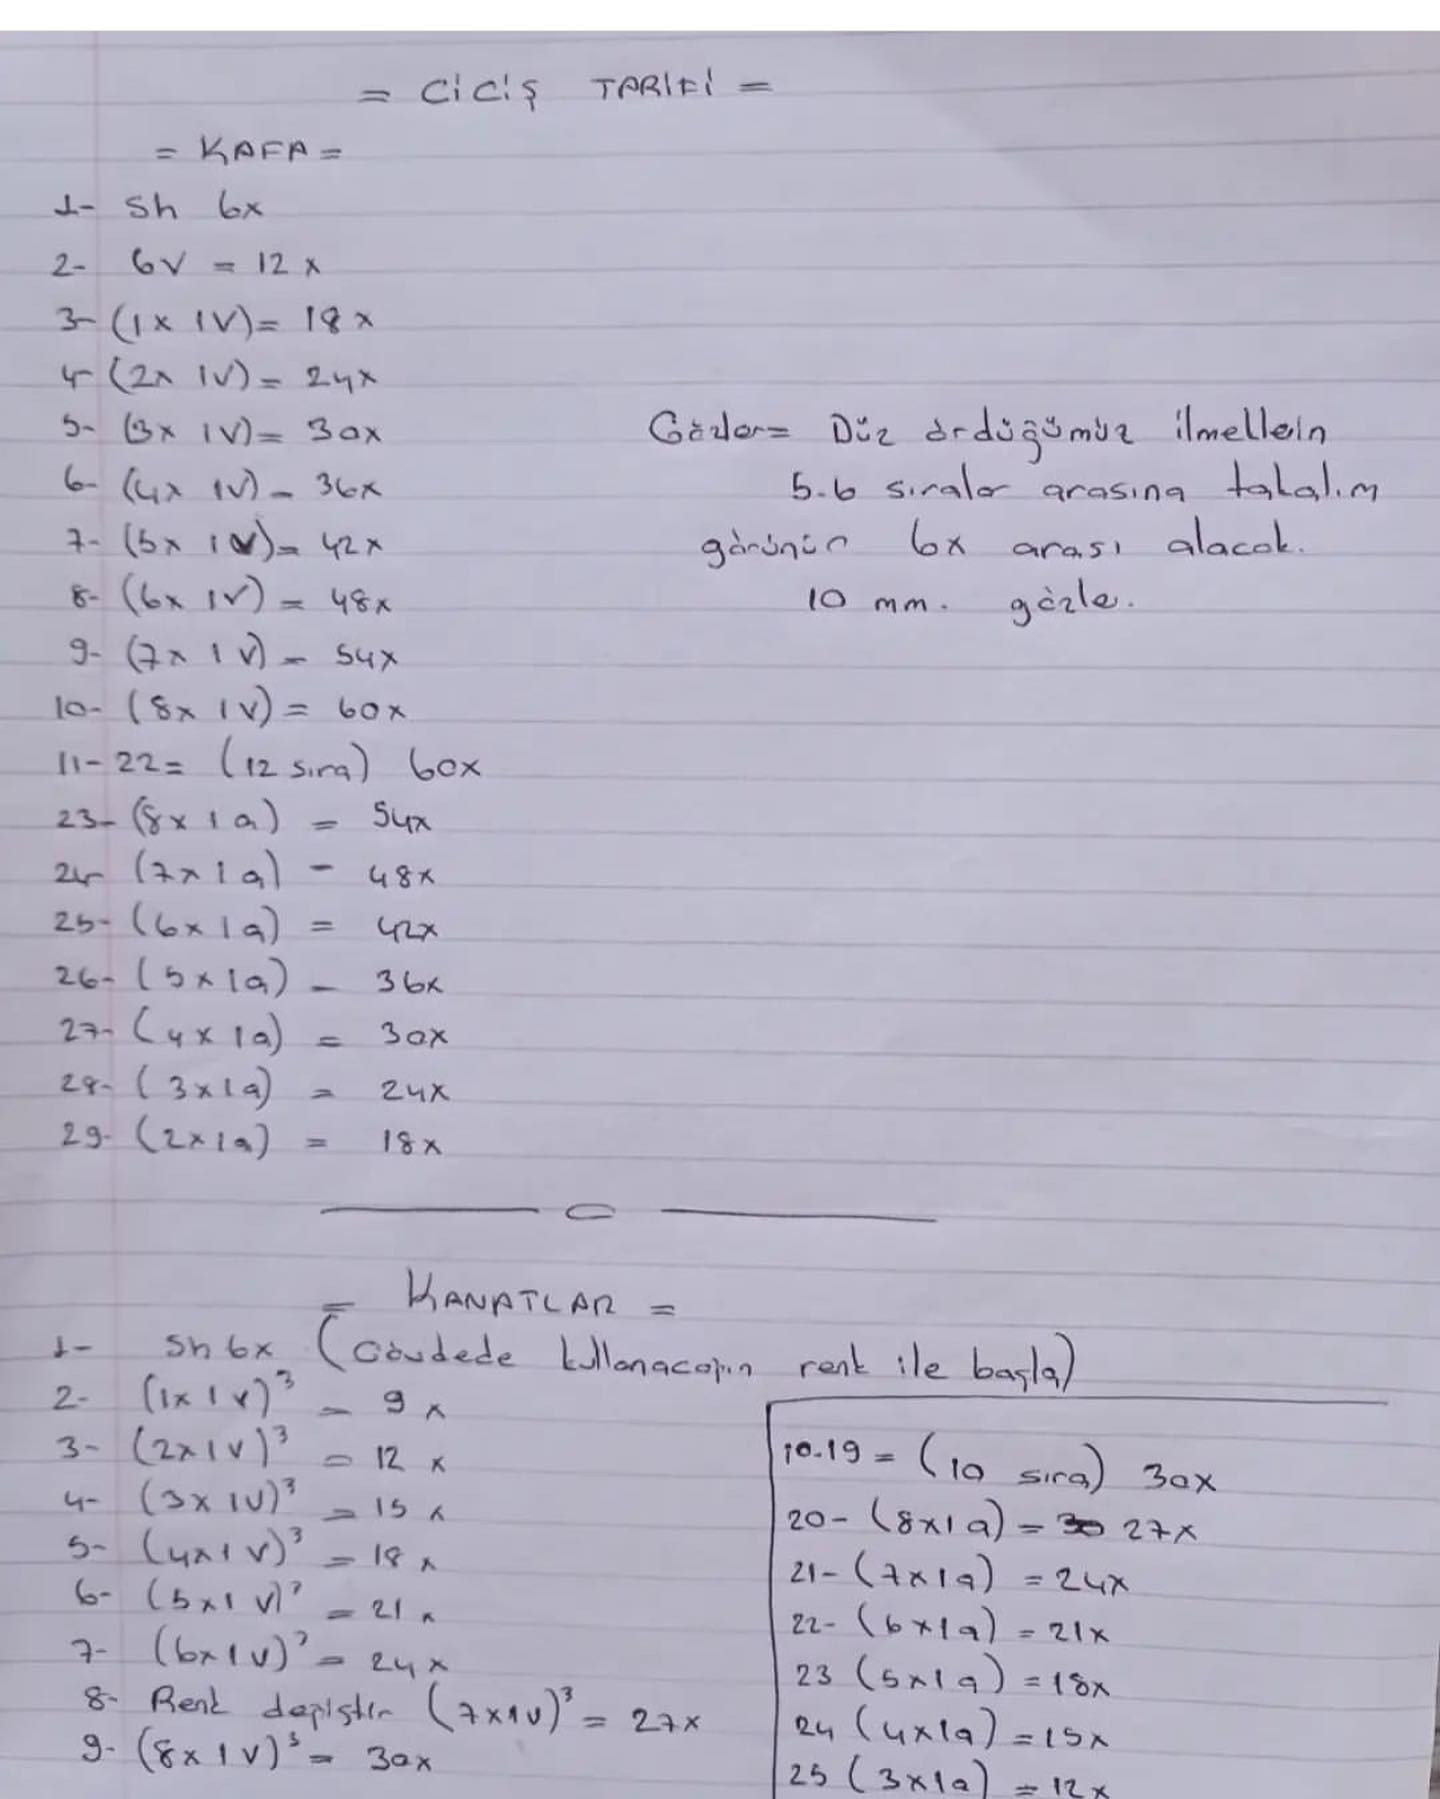 = CİCİŞ TARİFİ =
= KAFA =
1- Sh 6x
2- 6V = 12x
3- (1x 1V) = 18x
4- (2x 1V) = 24x
5- (3x 1V) = 30x
6- (4x 1V) = 36x
7- (5x 1V) = 42x
8- (6x 1V) = 48x
9- (7x 1V) = 54x
10- (8x 1V) = 60x
11-22 = (12 sıra) 60x
23- (8x1a) = 54x
24- (7x1a) = 48x
25- (6x1a) = 42x
26- (5x1a) = 36x
27- (4x1a) = 30x
28- (3x1a) = 24x
29- (2x1a) = 18x
Gözler = Düz ördüğümüz ilmellein
5.6 sıralar arasına takalım
görünür 6x arası alacak.
10 mm. gözle.
= KANATLAR =
1- Sh 6x (Gövdede kullanacağın renk ile başla)
2- (1x1v)³ = 9x
3- (2x1v)³ = 12x
4- (3x1v)³ = 15x
5- (4x1v)³ = 18x
6- (5x1v)³ = 21x
7- (6x1v)³ = 24x
8- Renk değiştir (7x1v)³ = 27x
9- (8x1v)³ = 30x
10.19 = (10 sıra) 30x
20- (8x1a) = 27x
21- (7x1a) = 24x
22- (6x1a) = 21x
23 (5x1a) = 18x
24 (4x1a) = 15x
25 (3x1a) = 12x